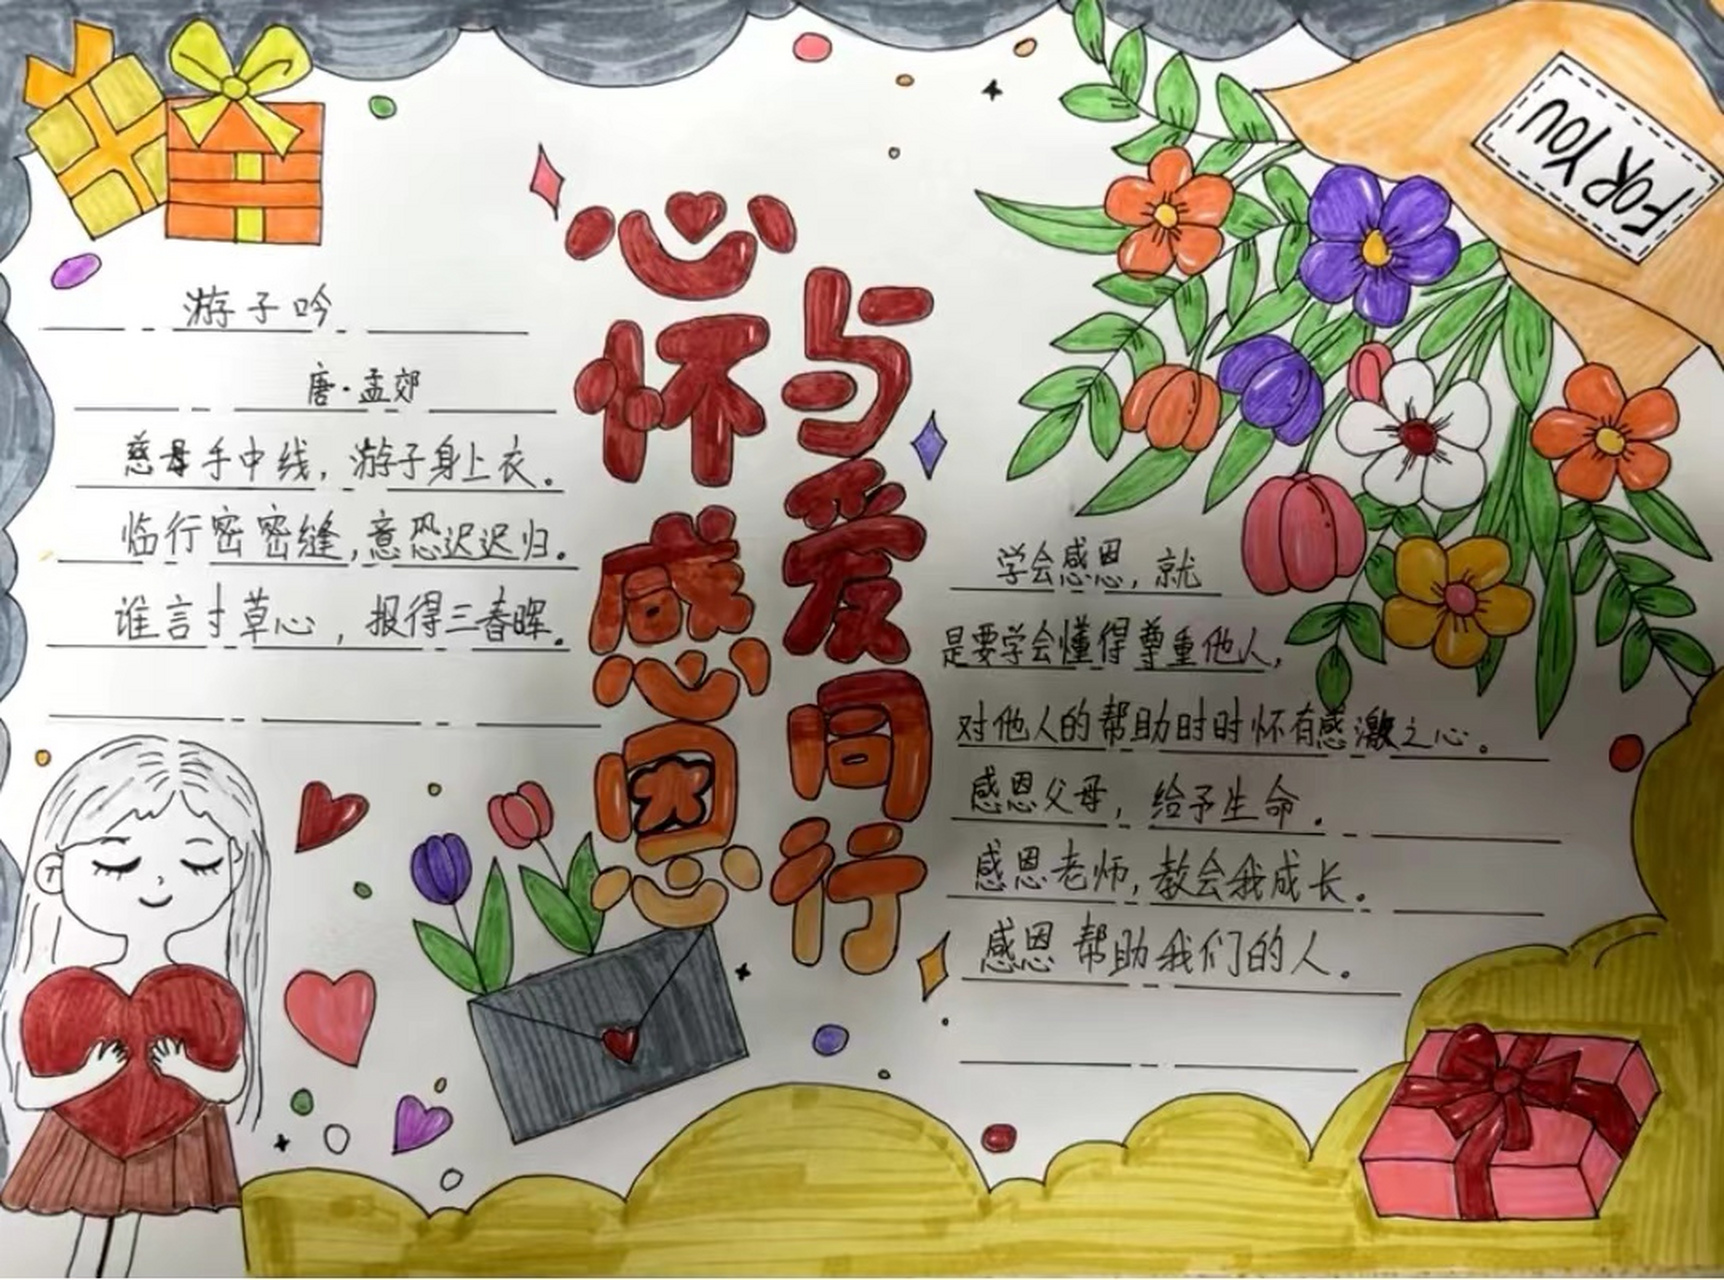 游子吟
唐·孟郊
慈母手中线，游子身上衣。
临行密密缝，意恐迟迟归。
谁言寸草心，报得三春晖。
心怀感恩
与爱同行
FOR YOU
学会感恩，就
是要学会懂得尊重他人，
对他人的帮助时时怀有感激之心。
感恩父母，给予生命．
感恩老师，教会我成长。
感恩帮助我们的人。